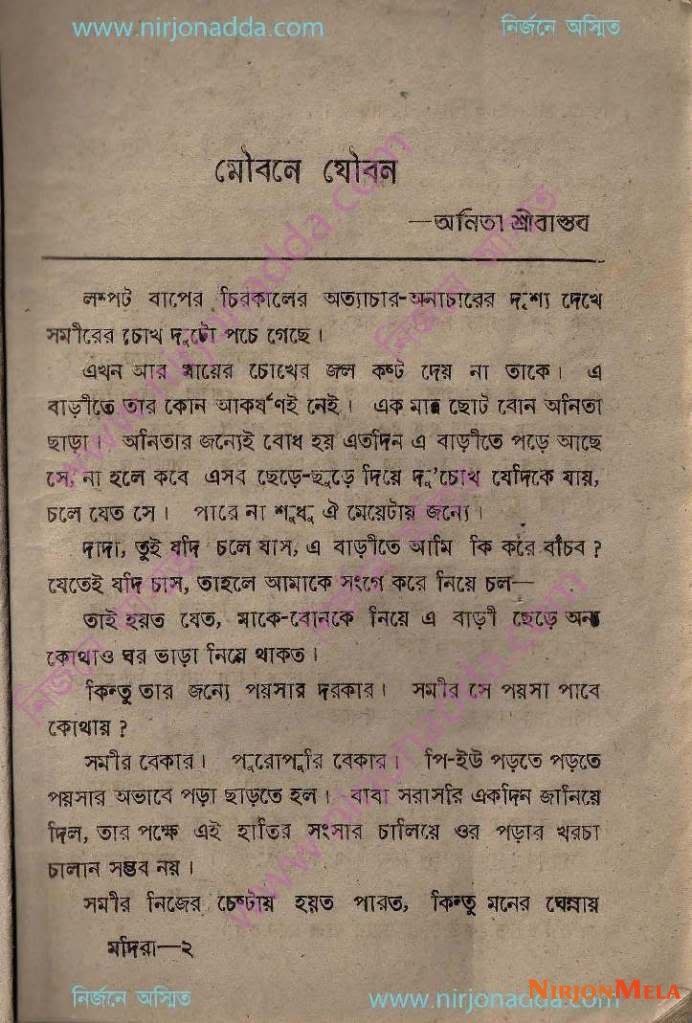 www.nirjonadda.com নির্জনে অস্মিত
মৌবনে যৌবন
—অনিতা শ্রীবাস্তব
লম্পট বাপের চিরকালের অত্যাচার-অনাচারের দৃশ্য দেখে
সমীরের চোখ দুটো পচে গেছে।
এখন আর মায়ের চোখের জল কষ্ট দেয় না তাকে। এ
বাড়ীতে তার কোন আকর্ষণই নেই। এক মাত্র ছোট বোন অনিতা
ছাড়া। অনিতার জন্যেই বোধ হয় এতদিন এ বাড়ীতে পড়ে আছে
সে, না হলে কবে এসব ছেড়ে-ছুড়ে দিয়ে দু'চোখ যেদিকে যায়,
চলে যেত সে। পারে না শুধু ঐ মেয়েটায় জন্যে।
দাদা, তুই যদি চলে যাস, এ বাড়ীতে আমি কি করে বাঁচব ?
যেতেই যদি চাস, তাহলে আমাকে সংগে করে নিয়ে চল—
তাই হয়ত যেত, মাকে-বোনকে নিয়ে এ বাড়ী ছেড়ে অন্য
কোথাও ঘর ভাড়া নিয়ে থাকত।
কিন্তু তার জন্যে পয়সার দরকার। সমীর সে পয়সা পাবে
কোথায় ?
সমীর বেকার। পুরোপুরি বেকার। পি-ইউ পড়তে পড়তে
পয়সার অভাবে পড়া ছাড়তে হল। বাবা সরাসরি একদিন জানিয়ে
দিল, তার পক্ষে এই হাতির সংসার চালিয়ে ওর পড়ার খরচা
চালান সম্ভব নয়।
সমীর নিজের চেষ্টায় হয়ত পারত, কিন্তু মনের ঘেন্নায়
মদিরা—২
নির্জনে অস্মিত www.nirjonadda.com
NIRJONMELA